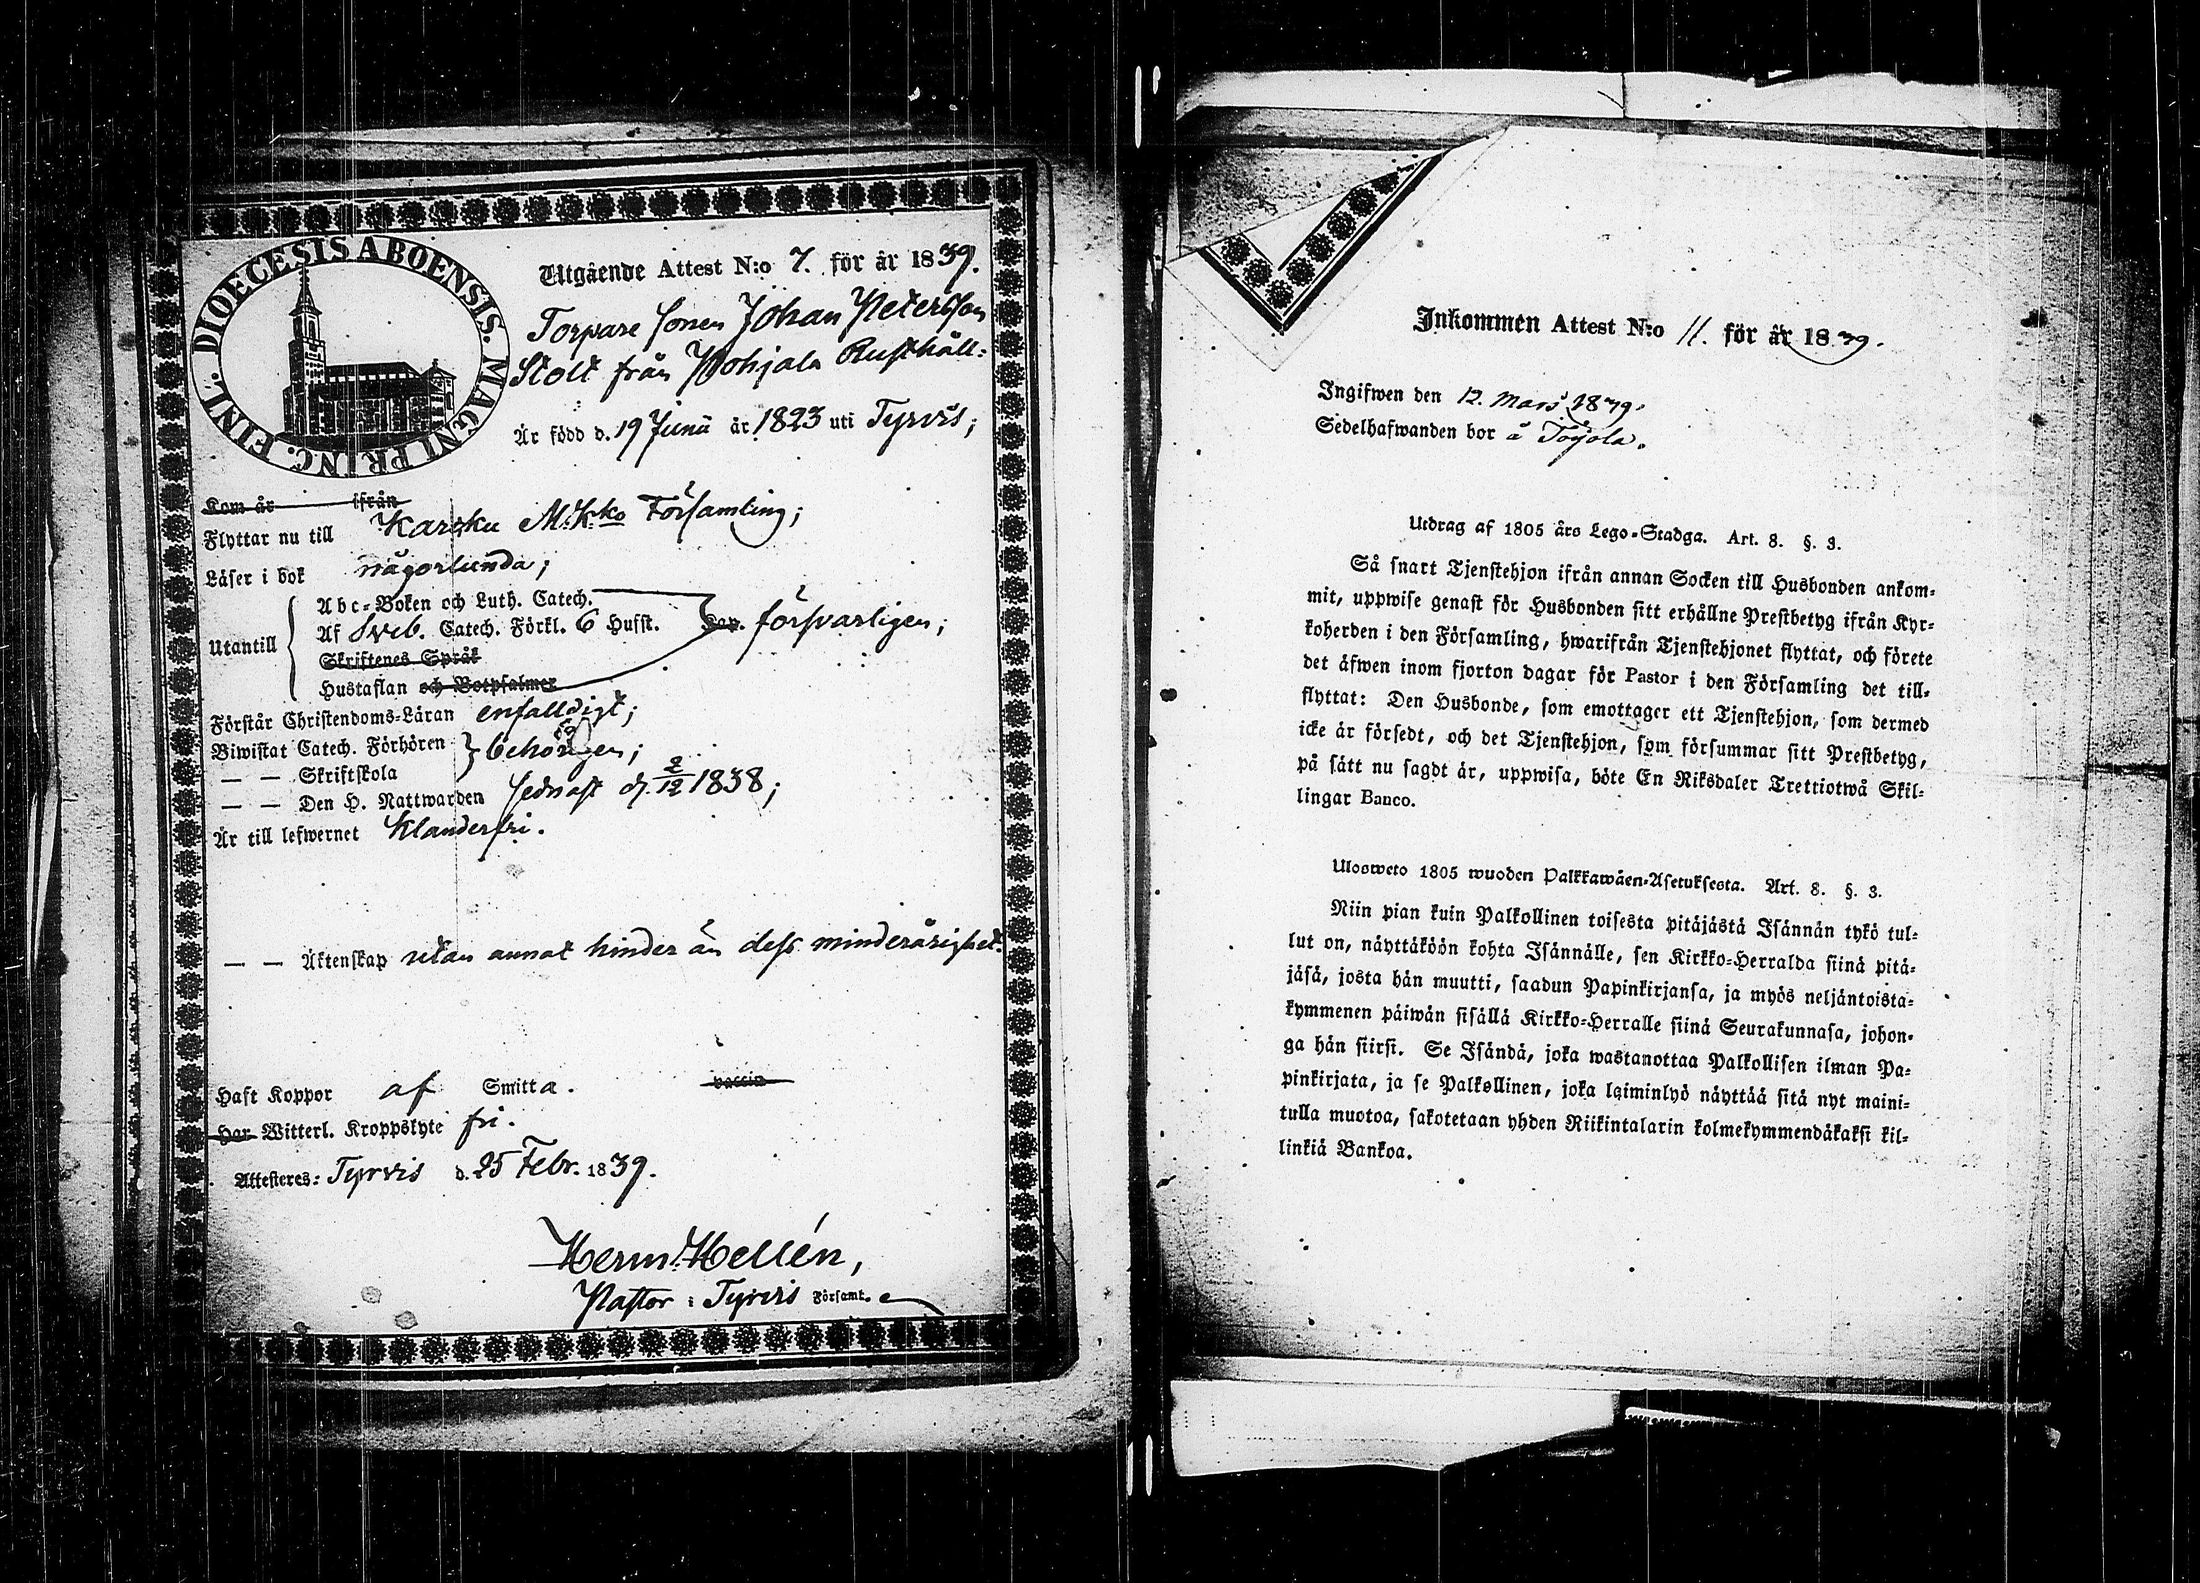 DIOECESIS ABOENSIS. MAGNI PRINC. FINL.
Utgående Attest N:o 7. för år 1839.
Torpare sonen Johan Petersson
Stolt från Pohjala Rusthåll:
Är född d. 19 Junii år 1823 uti Tyrvis;
Kom år ifrån
Flyttar nu till Karcku M.K:ko Församling;
Läser i bok någorlunda;
Abc-Boken och Luth. Catech.
Utantill Af Sveb. Catech. Förkl. 6 Hufst. Cap. försvarligen;
Skriftenes Språk
Hustaflan och Botpsalmer
Förstår Christendoms-Läran enfalldigt;
Biwistat Catech. Förhören behörigen;
— — Skriftskola
— — Den H. Nattwarden sednast d. 2/12 1838;
Är till lefwernet Klanderfri.
— — Äktenskap utan annat hinder än dess minderårighet.
Haft Koppor af Smitta. vaccin
Har Witterl. Kroppslyte fri.
Attesteres: Tyrvis d. 25 Febr. 1839.
Herm. Hellén,
Pastor i Tyrvis Församl.
Inkommen Attest N:o 11. för år 1839.
Ingifwen den 12. Mars 1839.
Sedelhafwanden bor å Töyola.
Utdrag af 1805 års Lego-Stadga. Art. 8. §. 3.
Så snart Tjenstehjon ifrån annan Socken till Husbonden ankom-
mit, uppwise genast för Husbonden sitt erhållne Prestbetyg ifrån Kyr-
koherden i den Församling, hwarifrån Tjenstehjonet flyttat, och förete
det äfwen inom fjorton dagar för Pastor i den Församling det till-
flyttat: Den Husbonde, som emottager ett Tjenstehjon, som dermed
icke är försedt, och det Tjenstehjon, som försummar sitt Prestbetyg,
på sätt nu sagdt är, uppwisa, böte En Riksdaler Trettiotwå Skil-
lingar Banco.
Ulosweto 1805 wuoden Palkkawäen-Asetuksesta. Art. 8. §. 3.
Niin pian kuin Palkollinen toisesta pitäjästä Isännän tykö tul-
lut on, näyttäköön kohta Isännälle, sen Kirkko-Herralda siinä pitä-
jäsä, josta hän muutti, saadun Papinkirjansa, ja myös neljäntoista-
kymmenen päiwän sisällä Kirkko-Herralle siinä Seurakunnasa, johon-
ga hän siirsi. Se Isändä, joka wastanottaa Palkollisen ilman Pa-
pinkirjata, ja se Palkollinen, joka laiminlyö näyttää sitä nyt maini-
tulla muotoa, sakotetaan yhden Riikintalarin kolmekymmendäkaksi kil-
linkiä Bankoa.